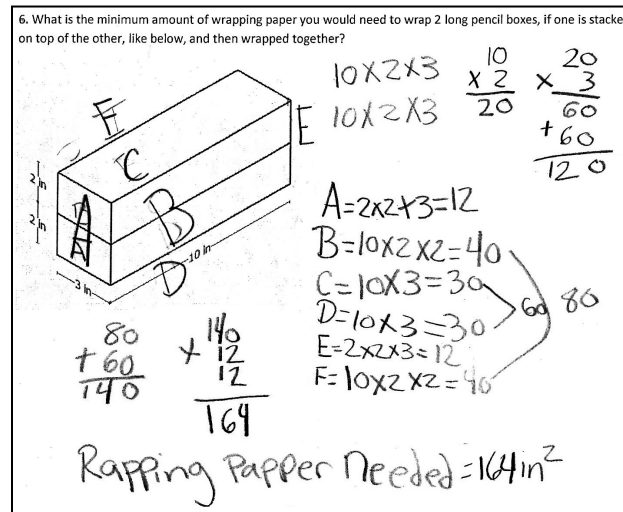 6. What is the minimum amount of wrapping paper you would need to wrap 2 long pencil boxes, if one is stacke
on top of the other, like below, and then wrapped together?
10X2X3
10X2X3
10
X 2
20
20
X 3
60
+60
120
F
E
C
A
B
D
2 in
2 in
3 in
10 in
A=2x2x3=12
B=10x2x2=40
C=10x3=30
D=10x3=30
E=2x2x3=12
F=10x2x2=40
60
80
80
+60
140
140
x 12
12
164
Rapping Papper Needed=164in²